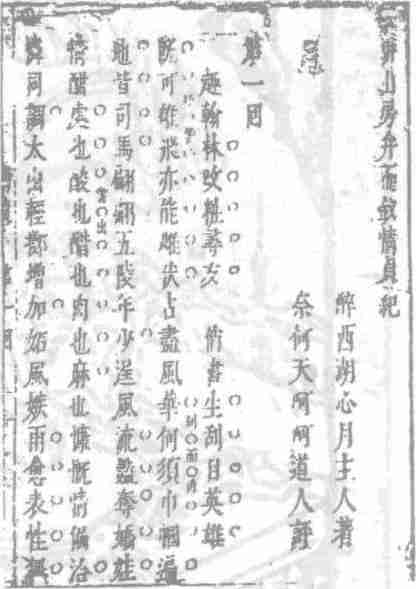 耕山房弁而釵情貞紀
醉西湖心月主人著
奈何天呵呵道人評
第一回
趣翰林改粧尋友 俏書生刮目英雄
既可雄飛亦能雌伏占盡風華何須巾幗遍
地皆司馬翩翩五陵年少逞風流豔奪嬌娃
情酣處也酸也醋也肉也麻也慷慨情偏洽
同調太出輕鄙增加妬風嫉雨愈表性